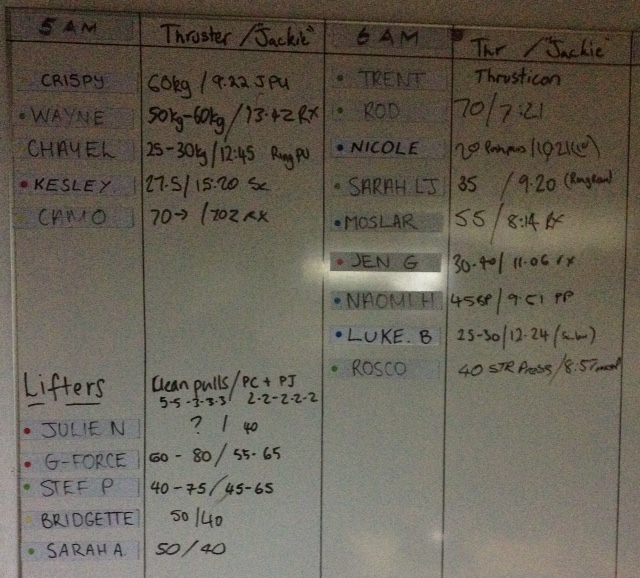 5 AM Thruster / "Jackie"
CRISPY 60kg / 9.22 JPU
WAYNE 50kg-60kg / 13.42 RX
CHAYEL 25-30kg / 12:45 Ring PU
KESLEY 27.5 / 15:20 Sc
CAMO 70→ / 7.02 RX
Lifters Clean pulls / PC + PJ
5-5-3-3-3 2-2-2-2-2
JULIE N ? / 40
G-FORCE 60 - 80 / 55-65
STEF P 40-75 / 45-65
BRIDGETTE 50/40
SARAH A. 50 / 40
6 AM Thr / "Jackie"
TRENT Thrusticon
ROD 70 / 7:21
NICOLE 20
SARAH LJ 35 / 9.20
MOSLAR 55 / 8:14 RX
JEN G 30-40 / 11.06 RX
NAOMI H 45 / 9:51 PP
LUKE. B 25-30 / 12.24
ROSCO 40 STR PRESS /